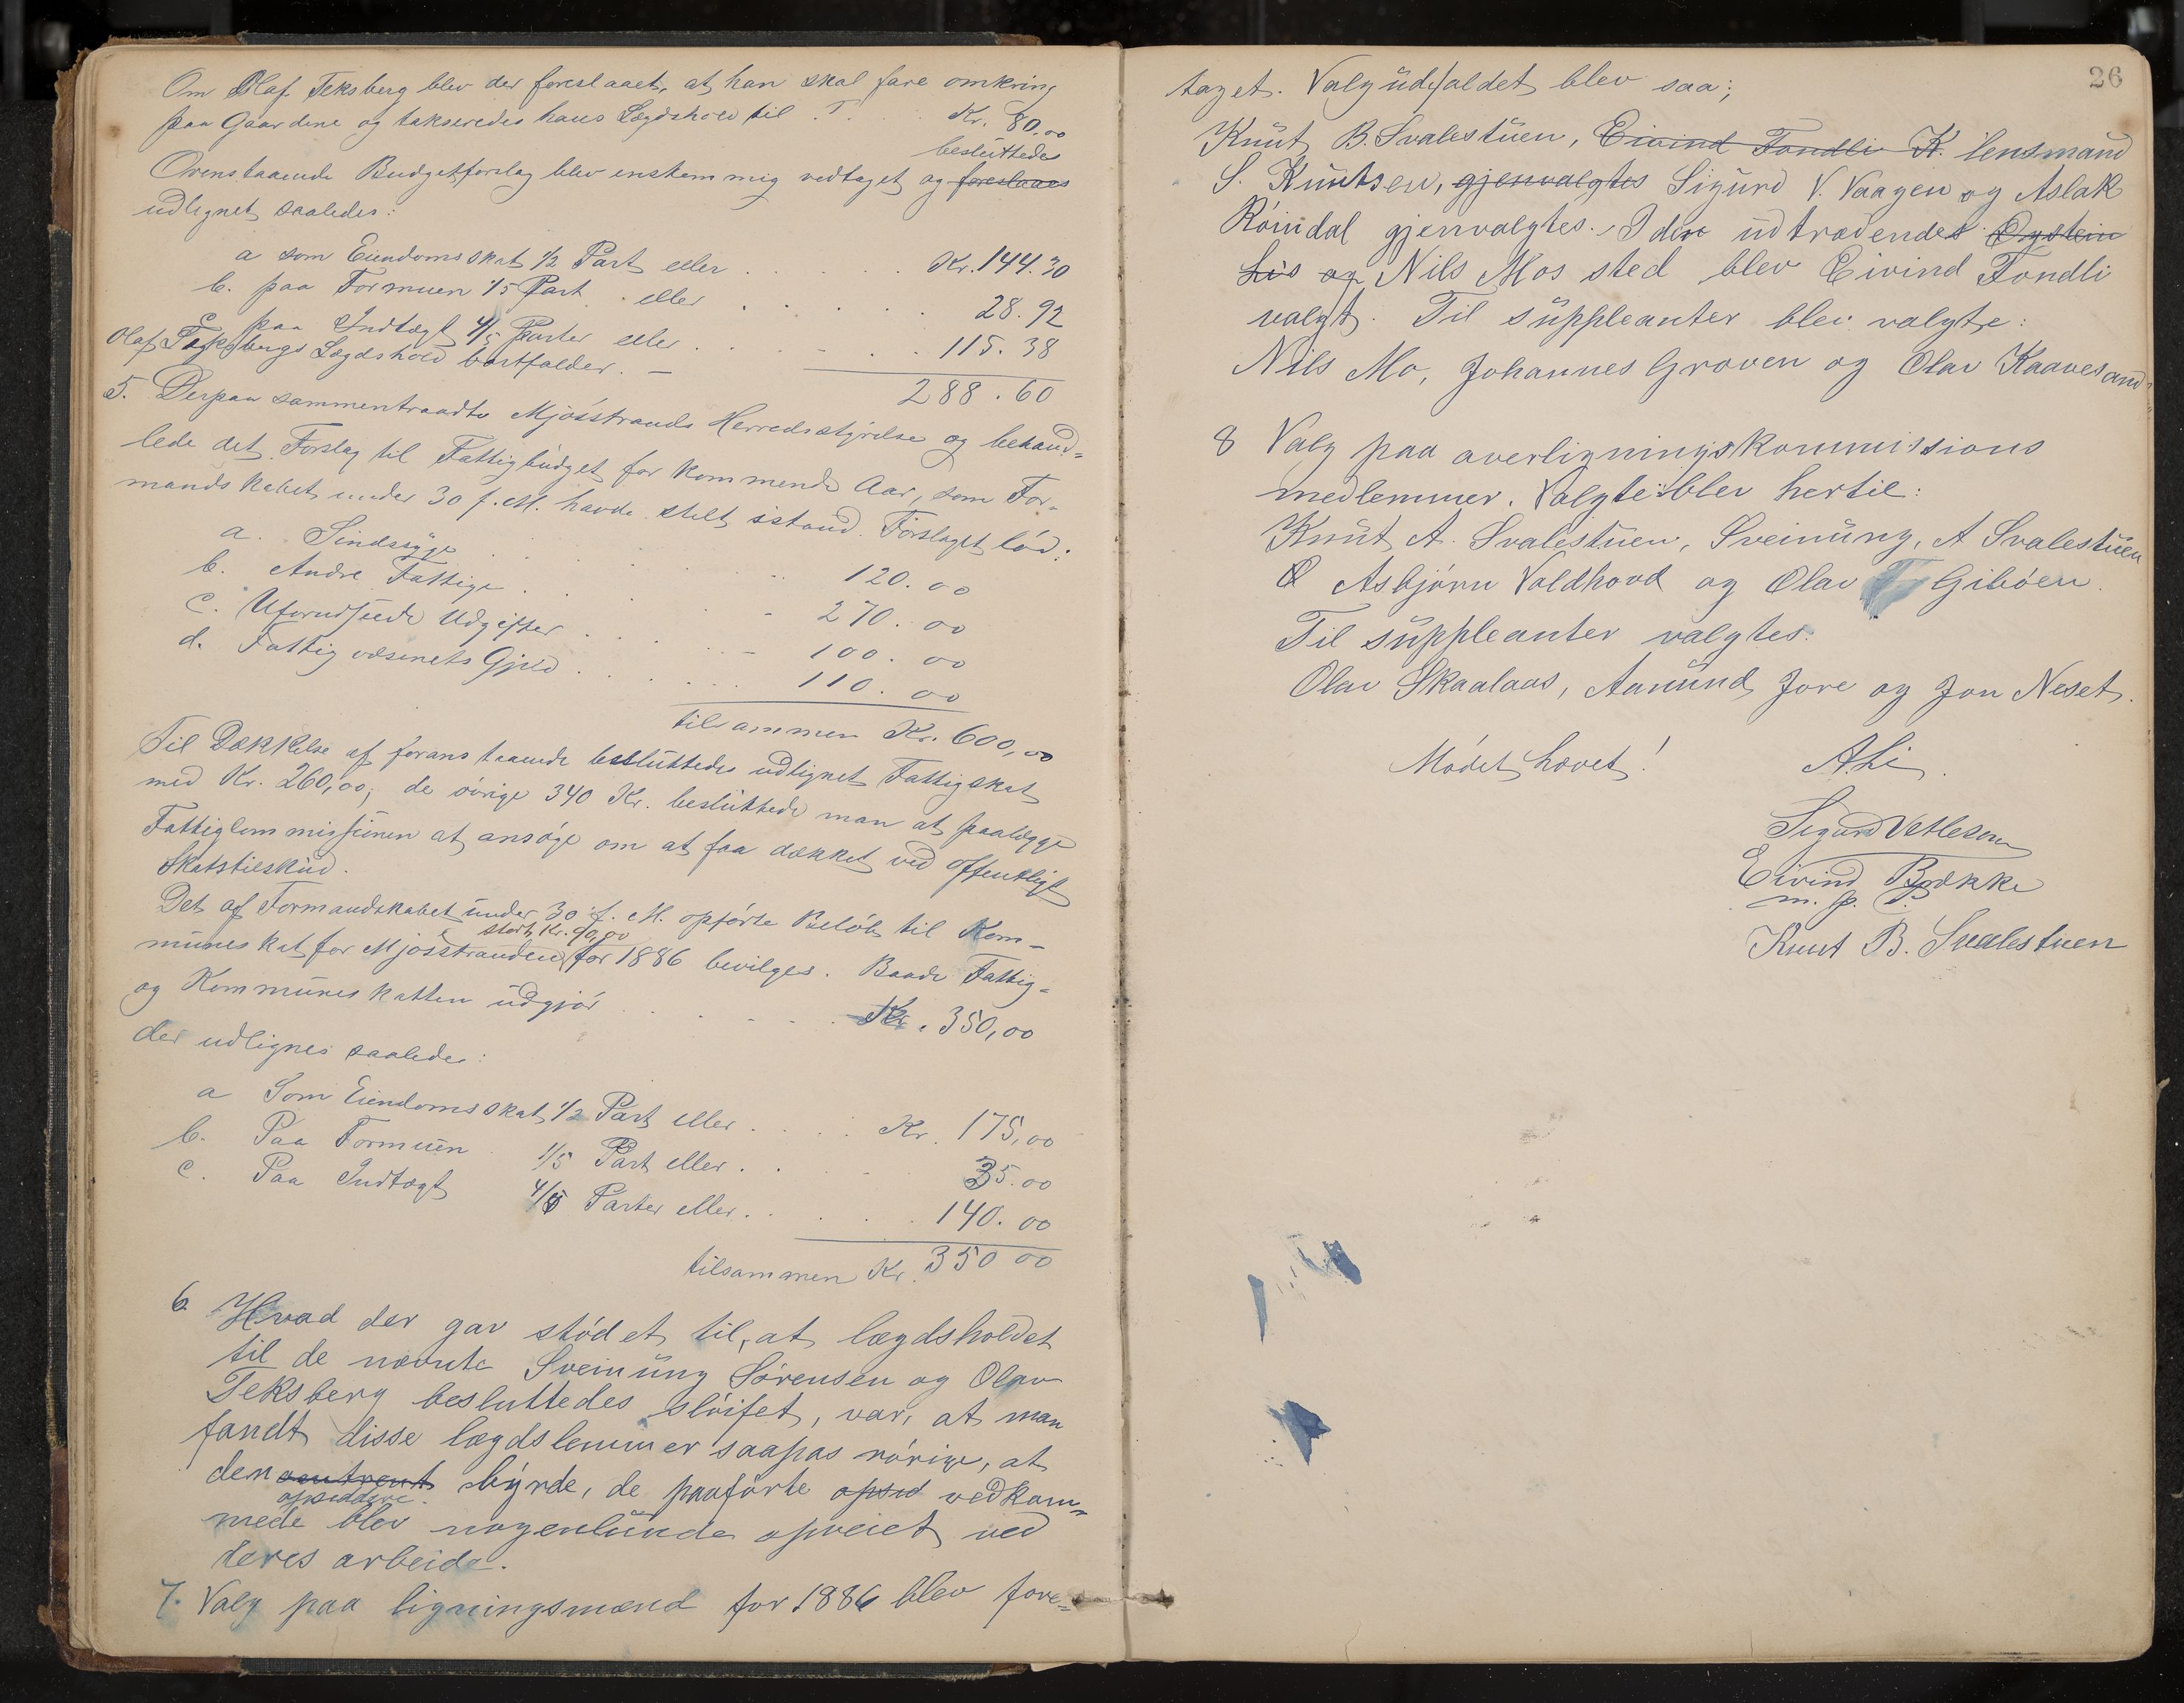 Om Olaf Teksberg blev der foreslaaet, at han skal fare omkring
paa Gaardene og takseredes hans Lægdshold til . . . Kr. 80,00
besluttedes
Ovenstaaende Budgetforslag blev enstemmig vedtaget og foreslaaes
udlignet saaledes:
a som Eiendomsskat 1/2 Part eller . . . . . . Kr. 144.30
b. paa Formuen 1/5 Part eller . . . . . . 28.92
c paa Indtægt 4/5 Parter eller . . . . . . 115.38
Olaf Teksbergs Lægdshold bortfalder. — 288.60
5. Derpaa sammentraadte Mjøsstrands Herredsstyrelse og behand=
lede det Forslag til Fattigbudget for kommende Aar, som For-
mandskabet under 30 f. M. havde stelt istand. Forslaget lød:
a. Sindssyge . . . . . . 120.00
b. Andre Fattige . . . . . . 270.00
c. Uforudseede Udgifter . . . . 100.00
d. Fattigvæsenets Gjeld . . . . . . 110.00
tilsammen Kr. 600,00
Til Dækkelse af foranstaaende besluttedes udlignet Fattigskat
med Kr. 260,00; de øvrige 340 Kr. besluttede man at paalægge
Fattigkommissionen at ansøge om at faa dækket ved offentligt
Skatstilskud.
Det af Formandskabet under 30 f. M. opførte Beløb til Kom-
stort Kr. 90,00
muneskat for Mjøsstranden for 1886 bevilges. Baade Fattig=
og Kommuneskatten udgjør . . . . . Kr. 350,00
der udlignes saaledes:
a Som Eiendomsskat 1/2 Part eller . . . . Kr. 175,00
b. Paa Formuen 1/5 Part eller . . . 35.00
c. Paa Indtægt 4/5 Parter eller . . . . . 140.00
tilsammen Kr. 350 00
6. Hvad der gav stødet til, at lægdsholdet
til de nævnte Sveinung Sørensen og Olav
Teksberg besluttedes sløifet, var, at man
fandt disse lægdslemmer saapas rørige, at
den omtrent byrde, de paaførte opsid vedkom=
opsiddere
mede blev nogenlunde opveiet ved
deres arbeide.
7. Valg paa ligningsmænd for 1886 blev fore=
26
taget. Valgudefaldet blev saa;
Knut B. Svalestuen, Eivind Fondli K. lensmand
S. Knutsen, gjenvalgtes Sigurd V. Vaagen og Aslak
Röindal gjenvalgtes. I den udtrædendes Øystein
Lis og Nils Mos sted blev Eivind Fondli
valgt. Til suppleanter blev valgte:
Nils Mo, Johannes Groven og Olav Kaavesand.
8 Valg paa overligningskommissions
medlemmer. Valgte blev hertil:
Knut A. Svalestuen, Sveinung A Svalestuen
O Asbjørn Valdhovd og Olav Gibøen.
Til suppleanter valgtes:
Olav Skaalaas, Aanund Jore og Jon Neset.
Mødet hævet!
A. Li.
Sigurd Vetlesen
Eivind Bække
m. p. P.
Knut B. Svalestuen